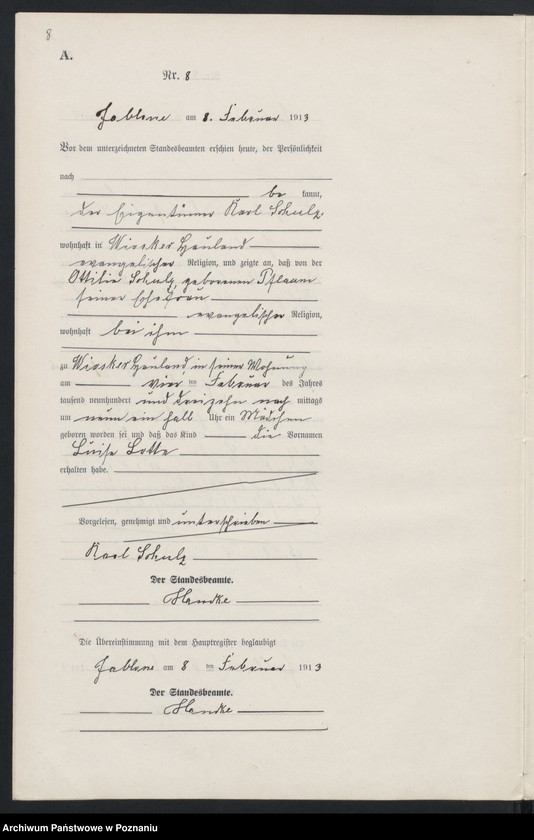 8
A.
Nr. 8
Jablone am 8. Februar 1913
Vor dem unterzeichneten Standesbeamten erschien heute, der Persönlichkeit
nach
be kannt,
der Eigentümer Karl Schulz,
wohnhaft in Wiosker Hauland
evangelischer Religion, und zeigte an, daß von der
Ottilie Schulz, geborenen Pflaum
seiner Ehefrau
evangelischer Religion,
wohnhaft bei ihm
zu Wiosker Hauland in seiner Wohnung
am vier ten Februar des Jahres
tausend neunhundert und dreizehn nach mittags
um neun ein halb Uhr ein Mädchen
geboren worden sei und daß das Kind die Vornamen
Luise Lotte
erhalten habe.
Vorgelesen, genehmigt und unterschrieben
Karl Schulz
Der Standesbeamte.
Handke
Die Übereinstimmung mit dem Hauptregister beglaubigt
Jablone am 8 ten Februar 1913
Der Standesbeamte.
Handke
Archiwum Państwowe w Poznaniu